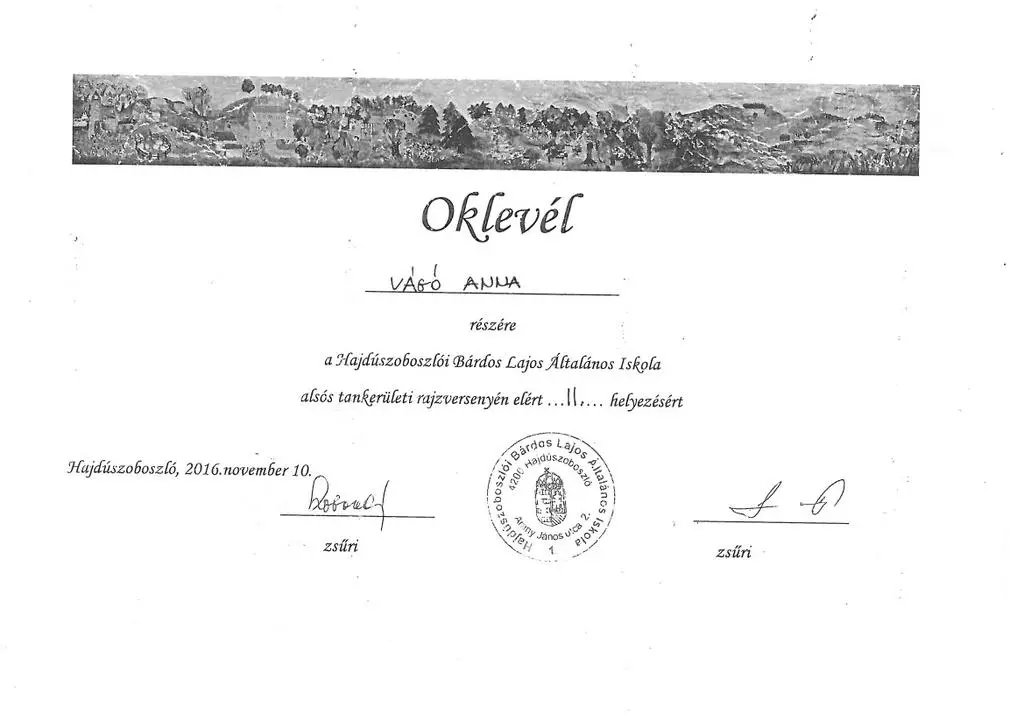 Oklevél
VÁGÓ ANNA
részére
a Hajdúszoboszlói Bárdos Lajos Általános Iskola
alsós tankerületi rajzversenyén elért ...II.... helyezésért
Hajdúszoboszló, 2016.november 10.
Hajdúszoboszlói Bárdos Lajos Általános Iskola
4200 Hajdúszoboszló
Arany János utca 2.
1.
zsűri
zsűri